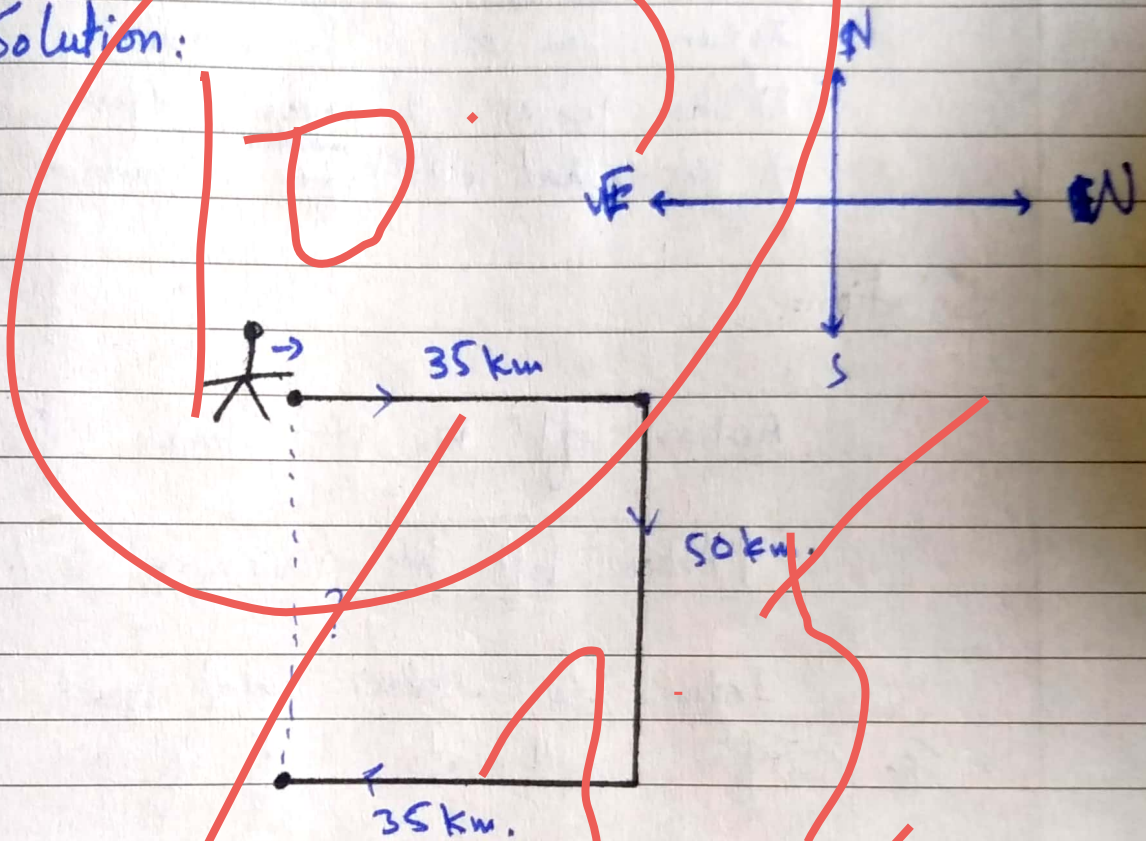 Solution:
N
E
W
S
35 km
50 km.
?
35 km.